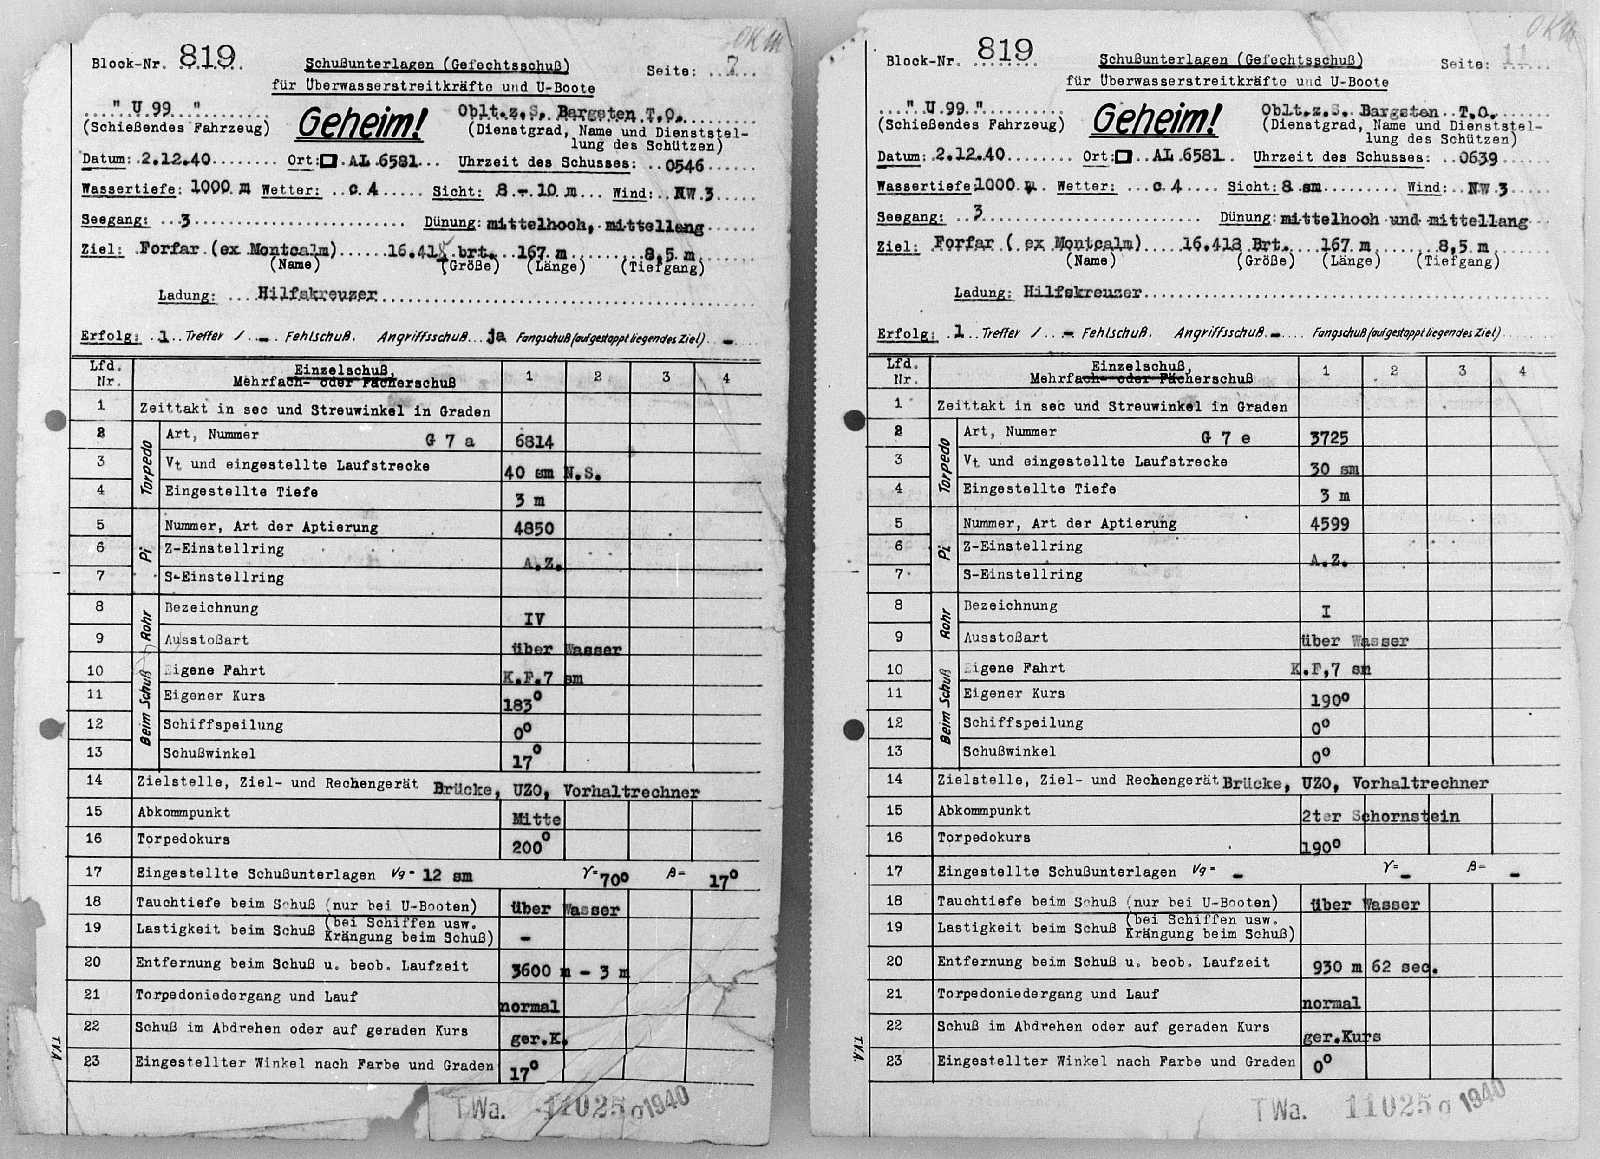 OKM
Block-Nr. 819
Schußunterlagen (Gefechtsschuß)
für Überwasserstreitkräfte und U-Boote
Seite: 7
" U 99 "
(Schießendes Fahrzeug)
Geheim!
Oblt.z.S. Bargsten T.O.
(Dienstgrad, Name und Dienststel-
lung des Schützen)
Datum: 2.12.40 Ort: AL 6581 Uhrzeit des Schusses: 0546
Wassertiefe: 1000 m Wetter: c 4 Sicht: 8 - 10 m Wind: NW 3
Seegang: 3 Dünung: mittelhoch, mittellang
Ziel: Forfar (ex Montcalm) 16.418 brt. 167 m 8,5 m
(Name) (Größe) (Länge) (Tiefgang)
Ladung: Hilfskreuzer
Erfolg: 1 Treffer / - Fehlschuß. Angriffsschuß ja Fangschuß (aufgestoppt liegendes Ziel) -
Lfd. Nr. Einzelschuß, Mehrfach- oder Fächerschuß 1 2 3 4
1 Zeittakt in sec und Streuwinkel in Graden
Torpedo
2 Art, Nummer G 7 a 6814
3 Vt und eingestellte Laufstrecke 40 sm N.S.
4 Eingestellte Tiefe 3 m
Pi
5 Nummer, Art der Aptierung 4850
6 Z-Einstellring A.Z.
7 S-Einstellring
Rohr
8 Bezeichnung IV
9 Ausstoßart über Wasser
Beim Schuß
10 Eigene Fahrt K.F.7 sm
11 Eigener Kurs 183°
12 Schiffspeilung 0°
13 Schußwinkel 17°
14 Zielstelle, Ziel- und Rechengerät Brücke, UZO, Vorhaltrechner
15 Abkommpunkt Mitte
16 Torpedokurs 200°
17 Eingestellte Schußunterlagen Vg= 12 sm γ= 70° β= 17°
18 Tauchtiefe beim Schuß (nur bei U-Booten) über Wasser
19 Lastigkeit beim Schuß (bei Schiffen usw. Krängung beim Schuß) -
20 Entfernung beim Schuß u. beob. Laufzeit 3600 m - 3 m
21 Torpedoniedergang und Lauf normal
22 Schuß im Abdrehen oder auf geraden Kurs ger.K.
23 Eingestellter Winkel nach Farbe und Graden 17°
TVA.
TWa. 11025g 1940
OKM
Block-Nr. 819
Schußunterlagen (Gefechtsschuß)
für Überwasserstreitkräfte und U-Boote
Seite: 11
" U 99 "
(Schießendes Fahrzeug)
Geheim!
Oblt.z.S. Bargsten T.O.
(Dienstgrad, Name und Dienststel-
lung des Schützen)
Datum: 2.12.40 Ort: AL 6581 Uhrzeit des Schusses: 0639
Wassertiefe: 1000 m Wetter: c 4 Sicht: 8 sm Wind: NW 3
Seegang: 3 Dünung: mittelhoch und mittellang
Ziel: Forfar ( ex Montcalm) 16.418 Brt. 167 m 8,5 m
(Name) (Größe) (Länge) (Tiefgang)
Ladung: Hilfskreuzer
Erfolg: 1 Treffer / - Fehlschuß. Angriffsschuß - Fangschuß (aufgestoppt liegendes Ziel)
Lfd. Nr. Einzelschuß, Mehrfach- oder Fächerschuß 1 2 3 4
1 Zeittakt in sec und Streuwinkel in Graden
Torpedo
2 Art, Nummer G 7 e 3725
3 Vt und eingestellte Laufstrecke 30 sm
4 Eingestellte Tiefe 3 m
Pi
5 Nummer, Art der Aptierung 4599
6 Z-Einstellring A.Z.
7 S-Einstellring
Rohr
8 Bezeichnung I
9 Ausstoßart über Wasser
Beim Schuß
10 Eigene Fahrt K.F,7 sm
11 Eigener Kurs 190°
12 Schiffspeilung 0°
13 Schußwinkel 0°
14 Zielstelle, Ziel- und Rechengerät Brücke, UZO, Vorhaltrechner
15 Abkommpunkt 2ter Schornstein
16 Torpedokurs 190°
17 Eingestellte Schußunterlagen Vg= - γ= - β= -
18 Tauchtiefe beim Schuß (nur bei U-Booten) über Wasser
19 Lastigkeit beim Schuß (bei Schiffen usw. Krängung beim Schuß)
20 Entfernung beim Schuß u. beob. Laufzeit 930 m 62 sec.
21 Torpedoniedergang und Lauf normal
22 Schuß im Abdrehen oder auf geraden Kurs ger.Kurs
23 Eingestellter Winkel nach Farbe und Graden 0°
TVA.
TWa. 11025g 1940